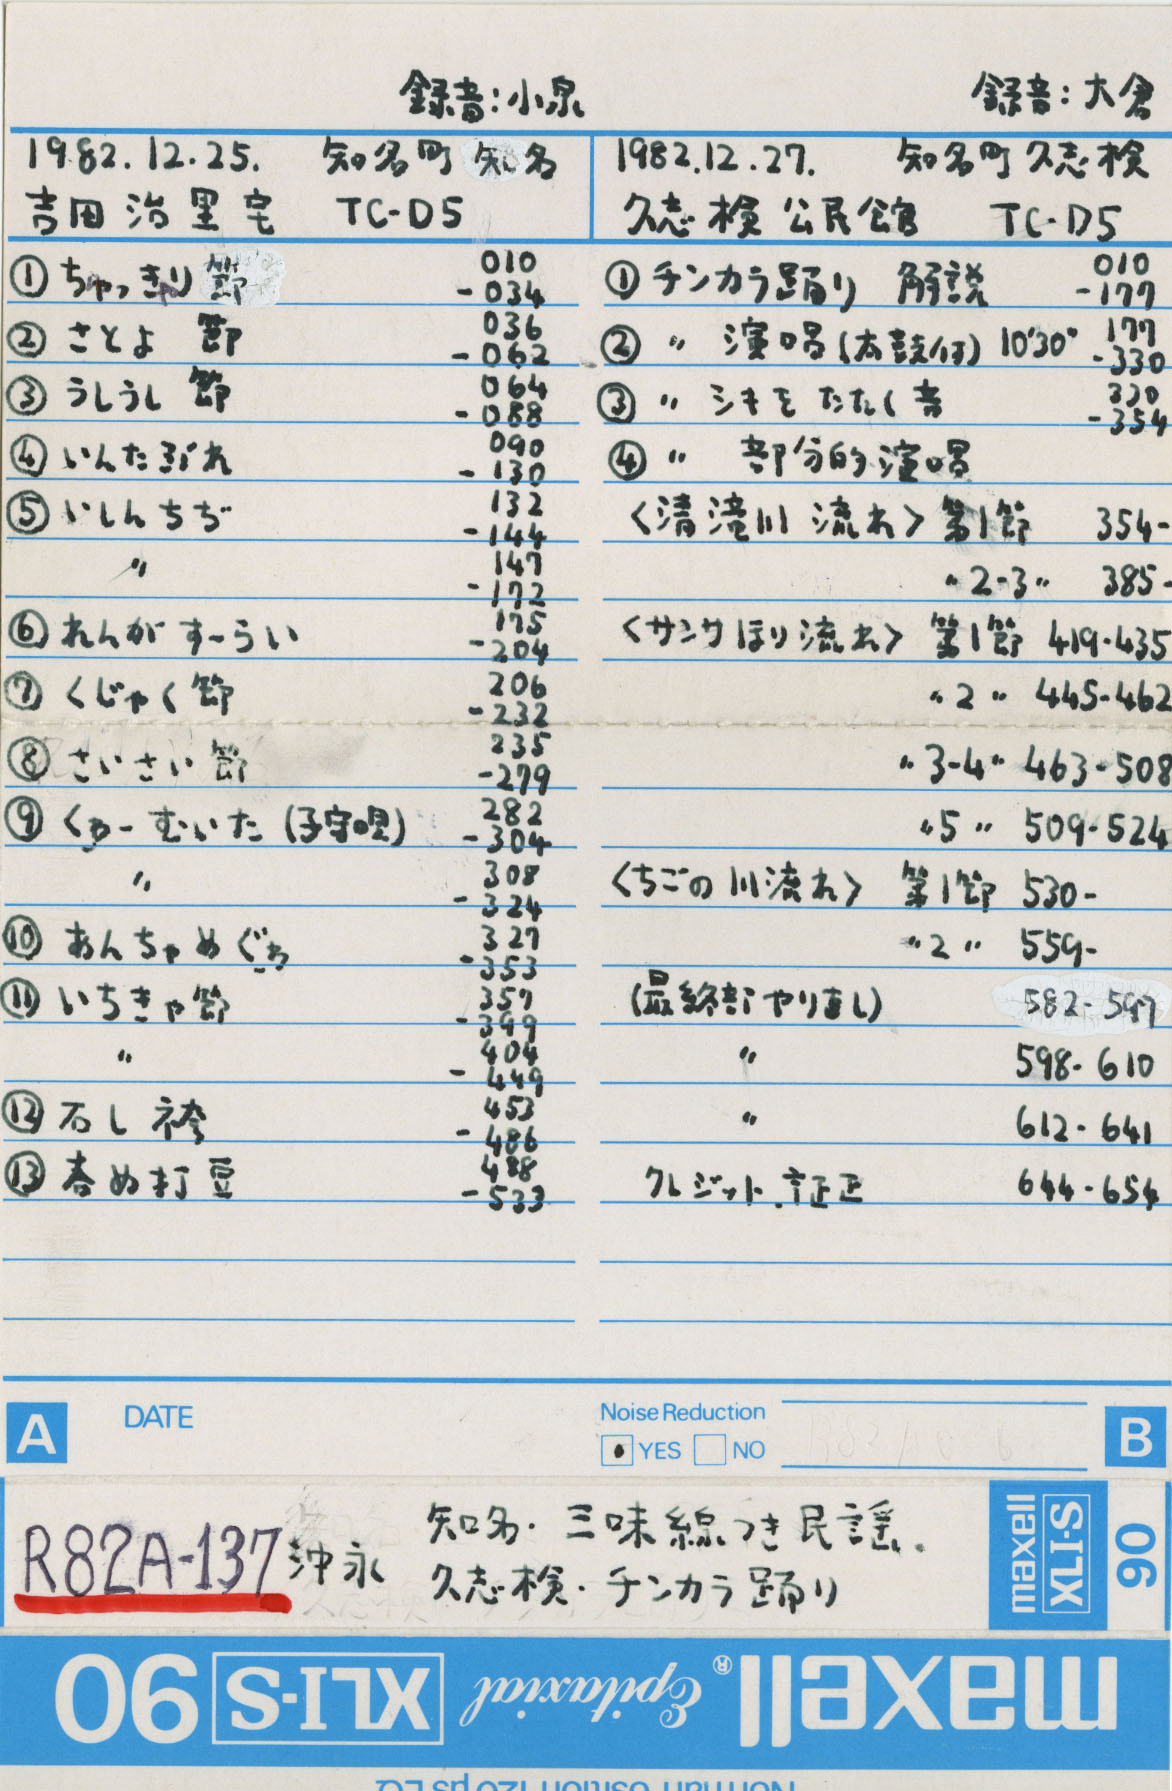 録音:小泉
1982.12.25. 知名町 知名
吉田 治里宅 TC-D5
① ちゃっきゃり節 010-034
② さとよ 節 036-062
③ うしうし 節 064-088
④ いんたぶれ 090-130
⑤ いしんちぢ 132-144
〃 147-172
⑥ れんがすーらい 175-204
⑦ くじゃく節 206-232
⑧ さいさい節 235-279
⑨ くゎーむいた (子守唄) 282-304
〃 308-324
⑩ あんちゃめぐゎ 327-353
⑪ いちきゃ節 357-399
〃 404-449
⑫ 石し袴 453-486
⑬ 春ぬ打豆 488-533
録音:大倉
1982.12.27. 知名町久志検
久志検公民館 TC-D5
① チンカラ踊り 解説 010-177
② 〃 演唱(太鼓付) 10'30" 177-330
③ 〃 シキをたたく音 330-354
④ 〃 部分的演唱
〈清滝川 流れ〉 第1節 354-
〃 2-3 〃 385-
〈サンサほり流れ〉 第1節 419-435
〃 2 〃 445-462
〃 3-4 〃 463-508
〃 5 〃 509-524
〈ちごの川流れ〉 第1節 530-
〃 2 〃 559-
(最終部やり直し) 582-597
〃 598-610
〃 612-641
クレジット訂正 644-654
A DATE
Noise Reduction
YES NO
B
R82A-137 沖永
知名・三味線つき民謡.
久志検・チンカラ踊り
maxell
XLI-S
90
maxell® Epitaxial XLI-S 90
Normal position 120 μs EQ